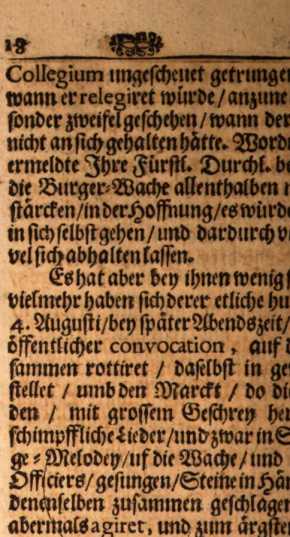 18
Collegium ungescheuet getrunge
wann er relegiret würde / anzune
sonder zweifel geschehen / wann der
nicht an sich gehalten hätte. Word
ermeldte Ihre Fürstl. Durchl. be
die Burger-Wache allenthalben
stärcken / in der Hoffnung / es würde
in sich selbst gehen / und dardurch v
vel sich abhalten lassen.
Es hat aber bey ihnen wenig
vielmehr haben sich derer etliche hu
4. Augusti / bey später Abendszeit /
öffentlicher convocation, auf d
sammen rottiret / daselbst in ge
stellet / umb den Marckt / do di
den / mit grossem Geschrey he
schimpffliche Lieder / und zwar in S
ge-Melodey / uf die Wache / und
Officiers / gesungen / Steine in Hän
denenselben zusammen geschlagen
abermals agiret, und zum ärgste